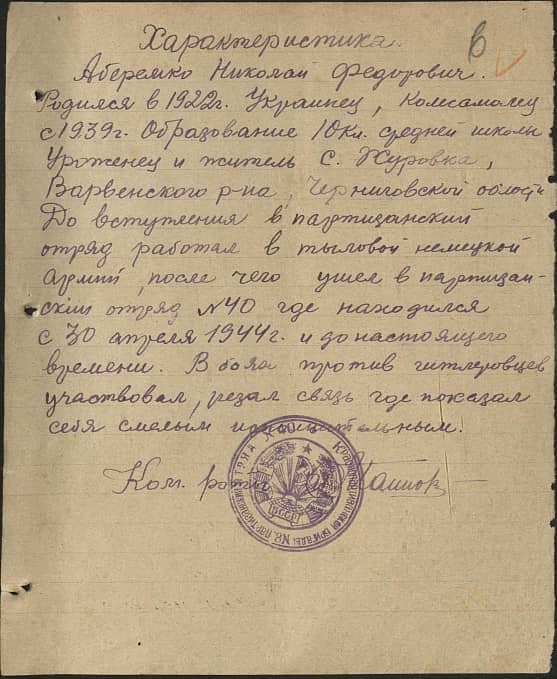 Характеристика.
6
Аберемко Николай Федорович.
Родился в 1922г. Украинец, Комсамолец
с 1939г. Образование 10кл. средней школы
Уроженец и житель с. Журовка,
Варвенского р-на, Черниговской области
До вступления в партизанский
отряд работал в тыловой немецкой
армий, после чего ушел в партизан-
ский отряд №40 где находился
с 30 апреля 1944г. и до настоящего
времени. В боях против гитлеровцев
участвовал, резал связь где показал
себя смелым и решительным.
Ком. роты